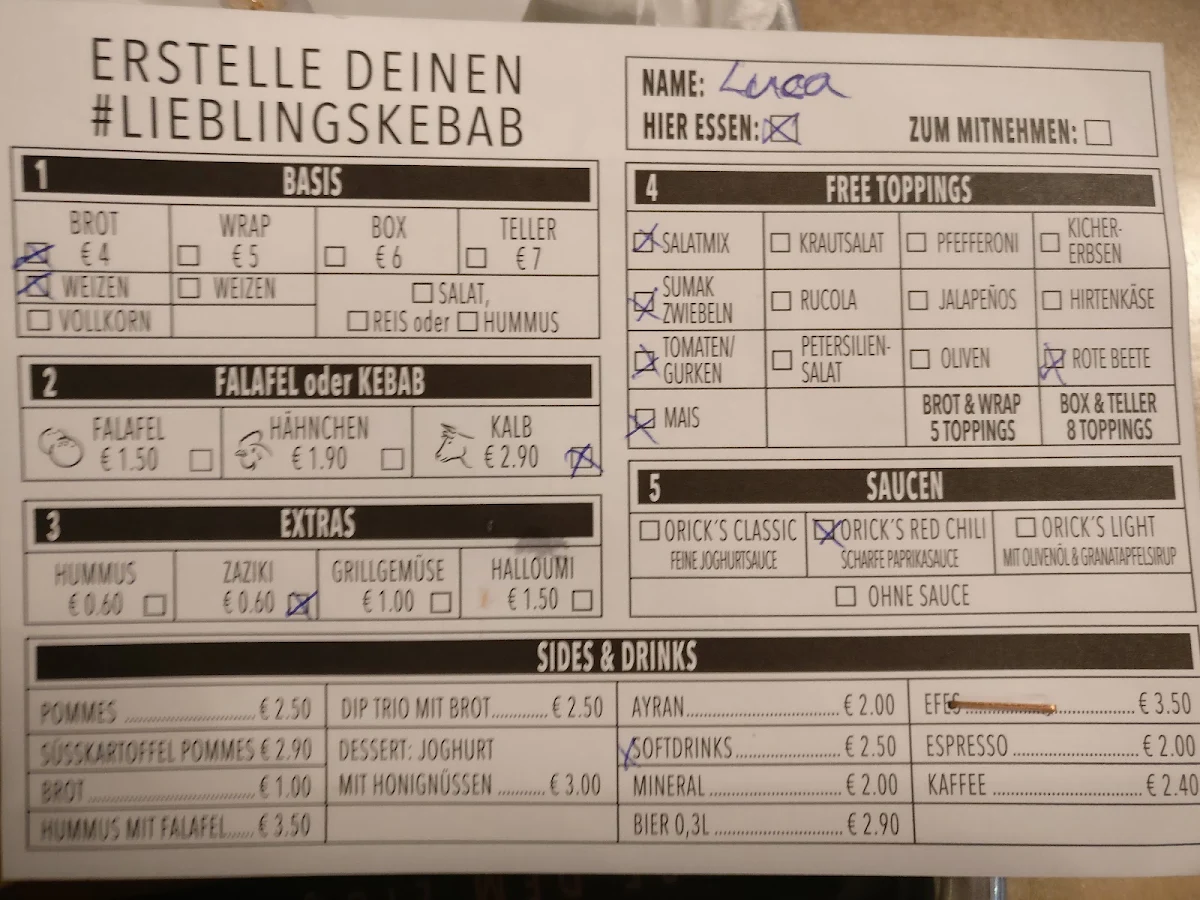 ERSTELLE DEINEN
#LIEBLINGSKEBAB
NAME: Luca
HIER ESSEN: ZUM MITNEHMEN:
1 BASIS
BROT WRAP BOX TELLER
€ 4 € 5 € 6 € 7
WEIZEN WEIZEN SALAT,
VOLLKORN REIS oder HUMMUS
2 FALAFEL oder KEBAB
FALAFEL HÄHNCHEN KALB
€ 1.50 € 1.90 € 2.90
3 EXTRAS
HUMMUS ZAZIKI GRILLGEMÜSE HALLOUMI
€ 0.60 € 0.60 € 1.00 € 1.50
4 FREE TOPPINGS
SALATMIX KRAUTSALAT PFEFFERONI KICHER-
ERBSEN
SUMAK
ZWIEBELN RUCOLA JALAPEÑOS HIRTENKÄSE
TOMATEN/ PETERSILIEN- OLIVEN ROTE BEETE
GURKEN SALAT
MAIS BROT & WRAP BOX & TELLER
5 TOPPINGS 8 TOPPINGS
5 SAUCEN
ORICK'S CLASSIC ORICK'S RED CHILI ORICK'S LIGHT
FEINE JOGHURTSAUCE SCHARFE PAPRIKASAUCE MIT OLIVENÖL & GRANATAPFELSIRUP
OHNE SAUCE
SIDES & DRINKS
POMMES € 2.50
SÜSSKARTOFFEL POMMES € 2.90
BROT € 1.00
HUMMUS MIT FALAFEL € 3.50
DIP TRIO MIT BROT € 2.50
DESSERT: JOGHURT
MIT HONIGNÜSSEN € 3.00
AYRAN € 2.00
SOFTDRINKS € 2.50
MINERAL € 2.00
BIER 0,3L € 2.90
EFES € 3.50
ESPRESSO € 2.00
KAFFEE € 2.40